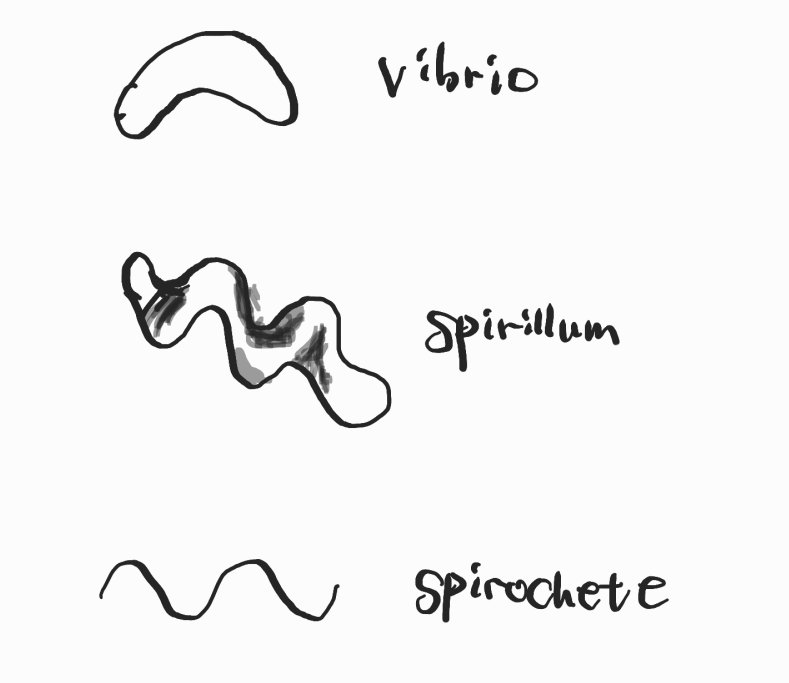 vibrio
spirillum
spirochete